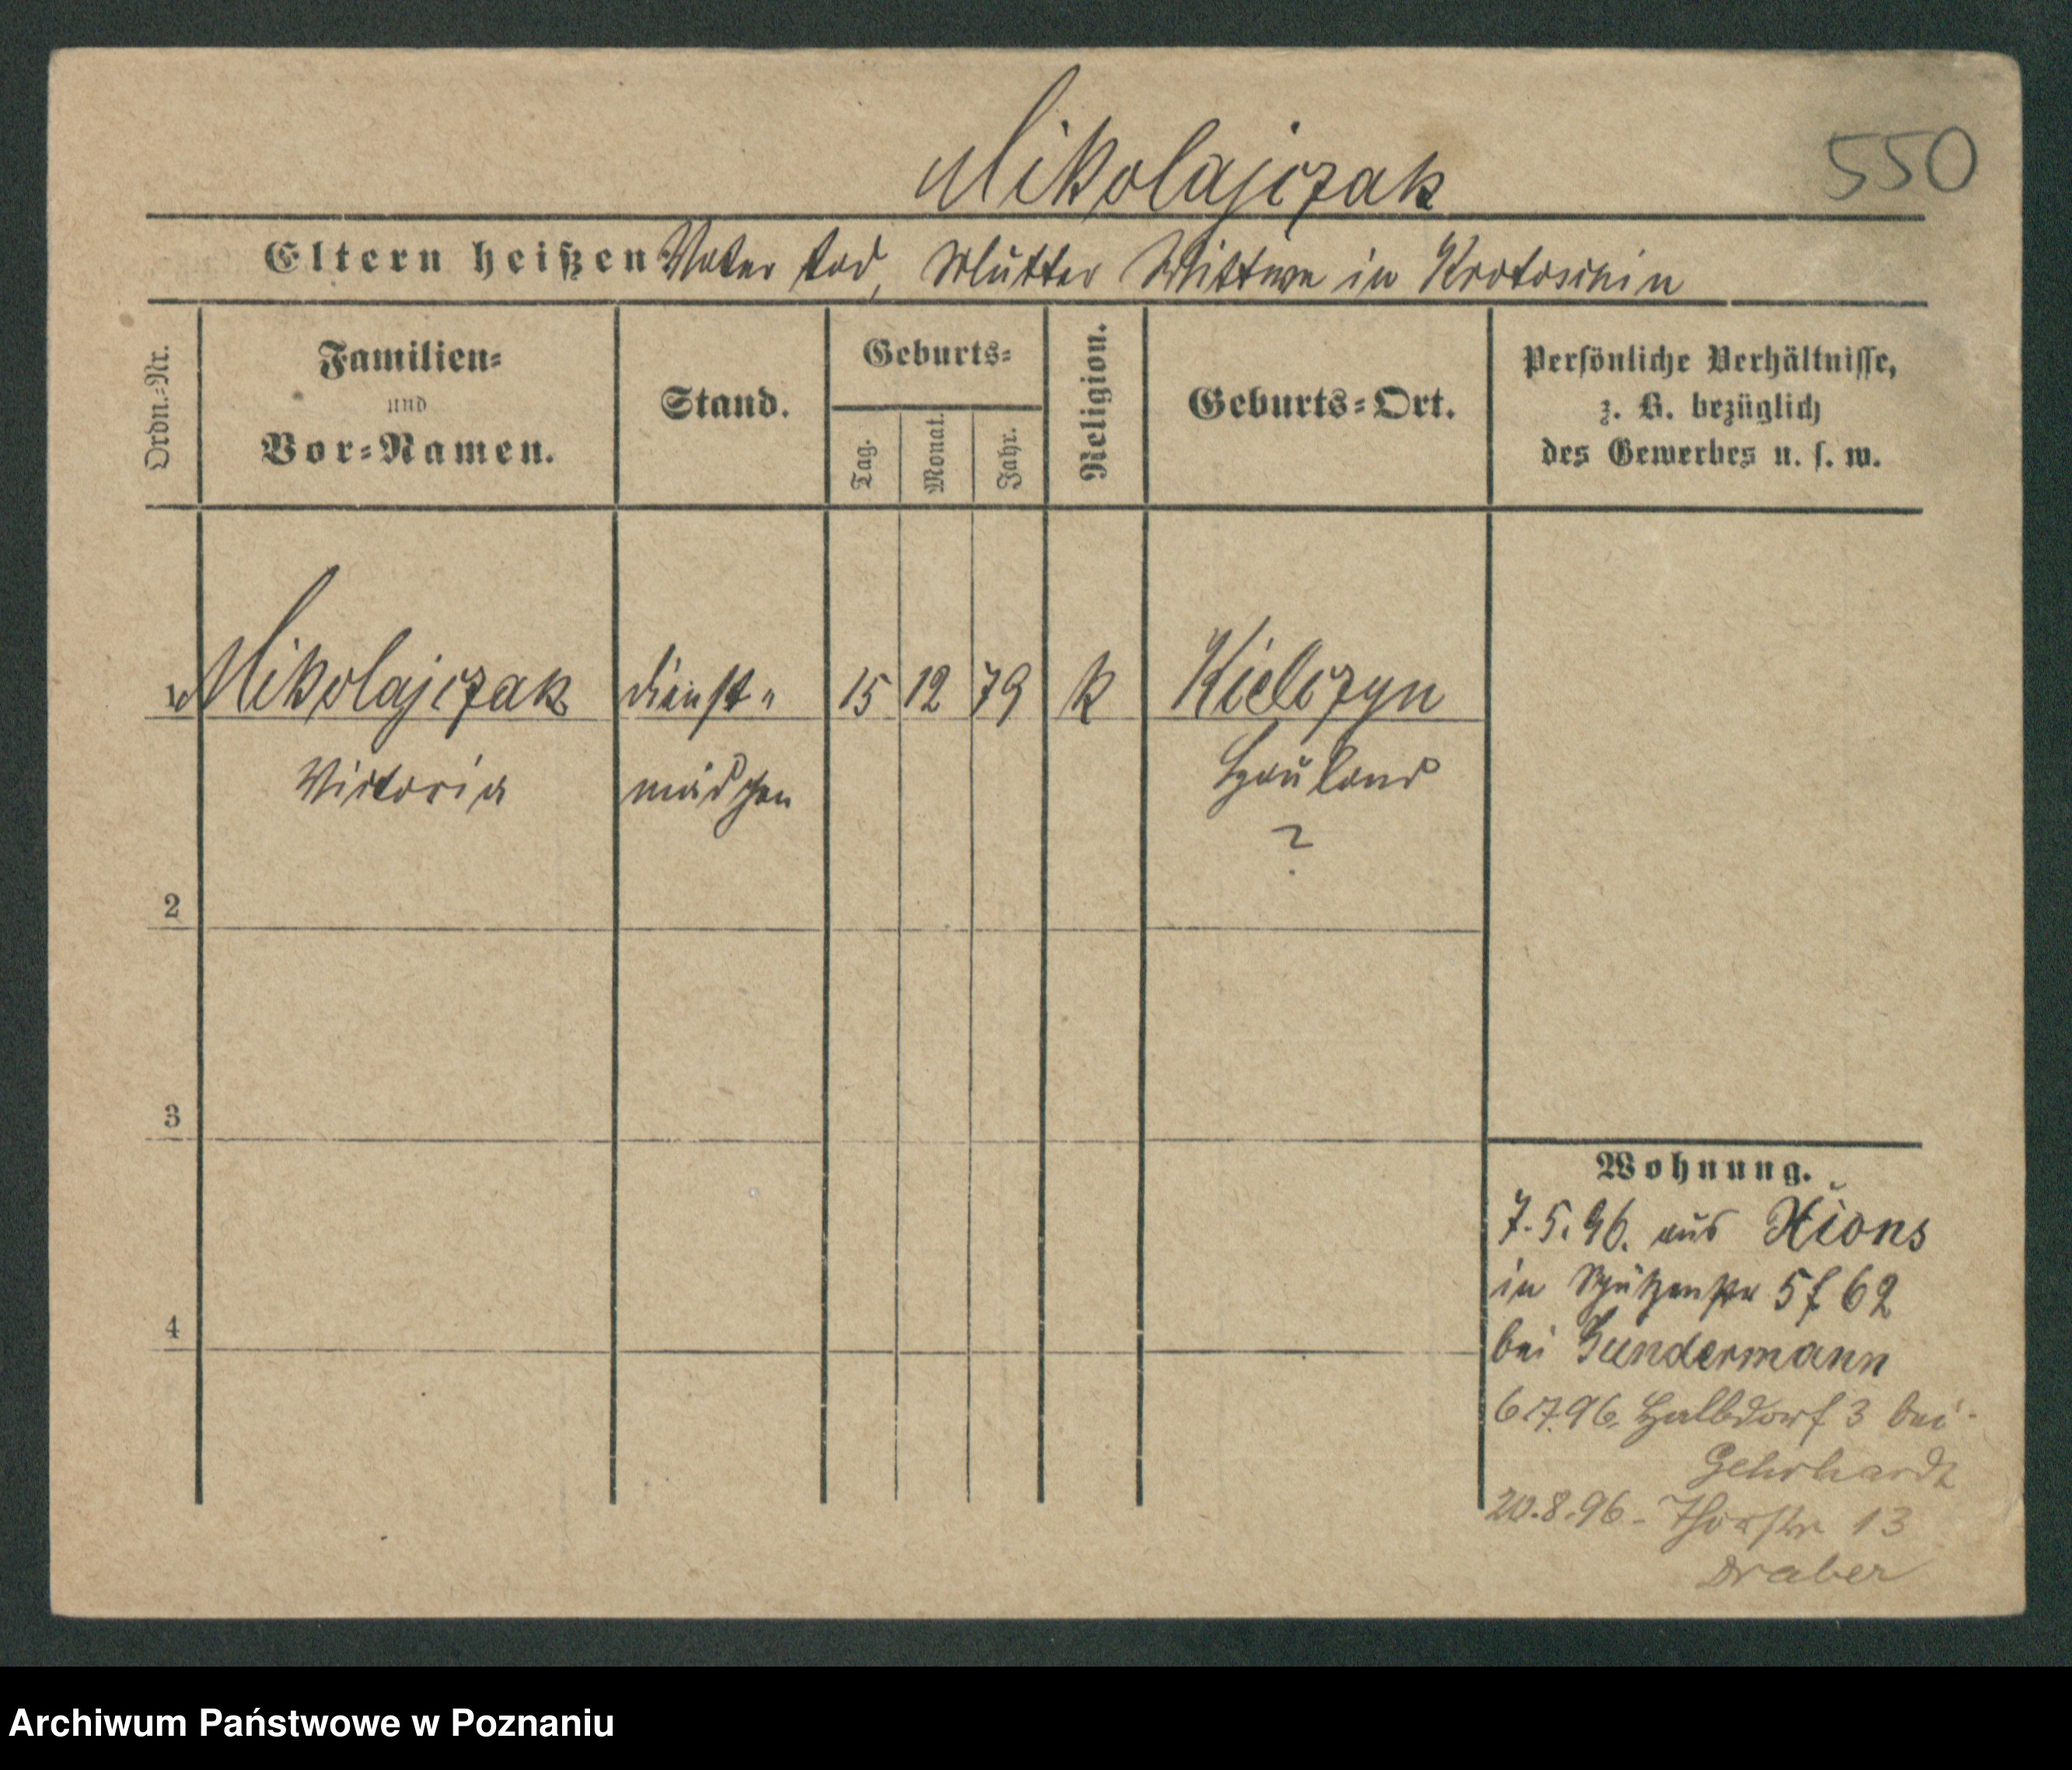 Mikolajczak
550
Eltern heißen Vater tod, Mutter Wittwe in Krotoschin
Ordn.=Nr.
Familien=
und
Vor=Namen.
Stand.
Geburts=
Tag.
Monat.
Jahr.
Religion.
Geburts=Ort.
Persönliche Verhältnisse,
z. B. bezüglich
des Gewerbes u. s. w.
1 Mikolajczak dienst= 15 12 79 k Kielczyn
Victoria mädchen Hauland
?
2
3
4
Wohnung.
7.5.96. aus Xions
in Schützenstr 5 f 62
bei Gundermann
6.7.96. Halbdorf 3 bei
Gehrhardt
20.8.96 - Thorstr 13
Draber
Archiwum Państwowe w Poznaniu